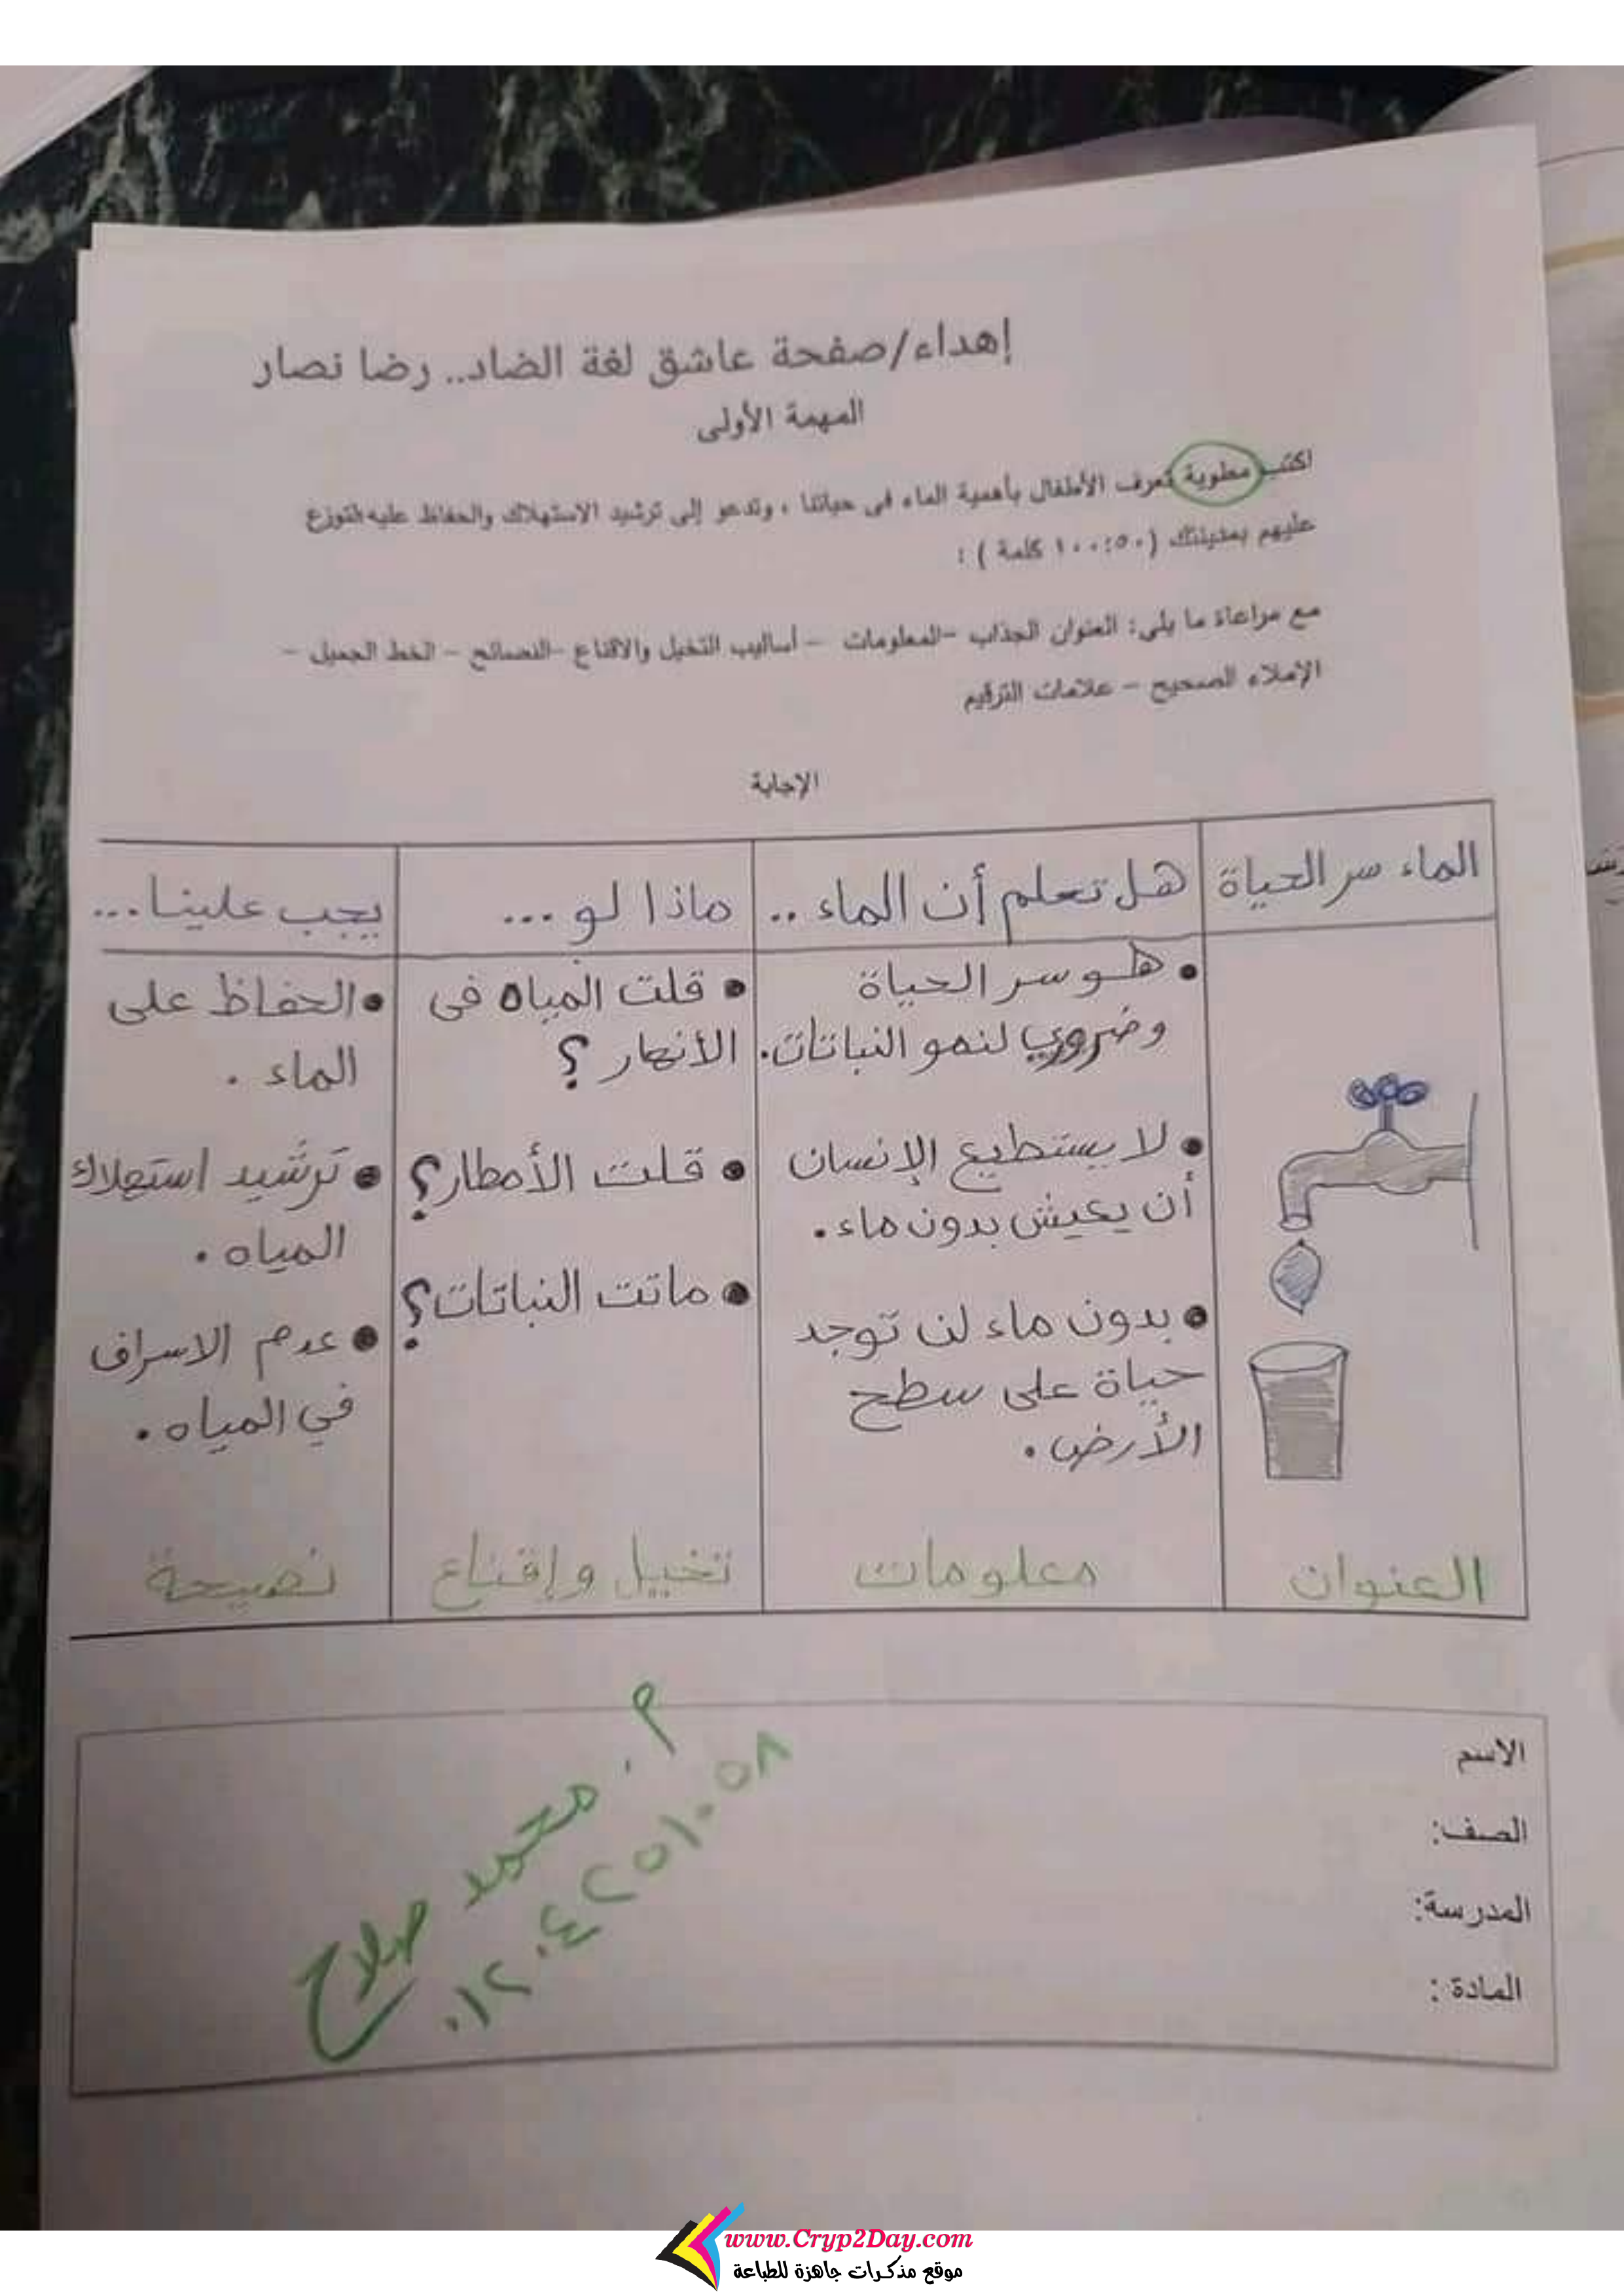 إهداء/صفحة عاشق لغة الضاد.. رضا نصار
المهمة الأولى
اكتب مطوية تعرف الأطفال بأهمية الماء فى حياتنا ، وتدعو إلى ترشيد الاستهلاك والحفاظ عليه لتوزع
عليهم بمدينتك (١٠٠:٥٠ كلمة ) :
مع مراعاة ما يلى: العنوان الجذاب –المعلومات – أساليب التخيل والاقناع –النصائح – الخط الجميل –
الإملاء الصحيح – علامات الترقيم
الإجابة
الماء سر الحياة
هل تعلم أن الماء ..
ماذا لو ...
يجب علينا...
• هو سر الحياة
وضروري لنمو النباتات.
• لا يستطيع الإنسان
أن يعيش بدون ماء.
• بدون ماء لن توجد
حياة على سطح
الأرض.
• قلت المياه فى
الأنهار ؟
• قلت الأمطار؟
• ماتت النباتات؟
• الحفاظ على
الماء .
• ترشيد استهلاك
المياه .
• عدم الاسراف
في المياه .
العنوان
معلومات
تخيل وإقناع
نصيحة
الاسم
الصف:
المدرسة:
المادة :
م. محمد صلاح
٠١٢٠٤٢٥١٠٥٨
www.Cryp2Day.com
موقع مذكرات جاهزة للطباعة